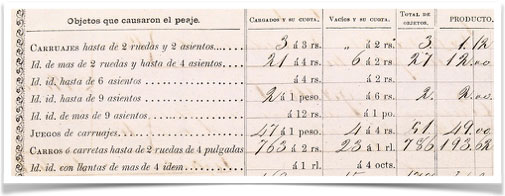 Objetos que causaron el peaje. CARGADOS Y SU CUOTA. VACÍOS Y SU CUOTA. TOTAL DE OBJETOS. PRODUCTO.
CARRUAJES hasta de 2 ruedas y 2 asientos.... 3 á 3 rs. „ á 2 rs. 3. 1.12
Id. de mas de 2 ruedas y hasta de 4 asientos.... 21 á 4 rs. 6 á 2 rs. 27 12.00
Id. id. hasta de 6 asientos á 4 rs. á 2 rs.
Id. id. hasta de 9 asientos 2 á 1 peso. á 6 rs. 2. 2.00
Id. id. de mas de 9 asientos á 12 rs. á 1 po.
JUEGOS de carruajes. 47 á 1 peso. 4 á 4 rs. 51. 49.00
CARROS ó carretas hasta de 2 ruedas de 4 pulgadas 763 á 2 rs. 23 á 1 rl. 786 193.62
Id. id. con llantas de mas de 4 idem á 1 rl. á 4 octs.